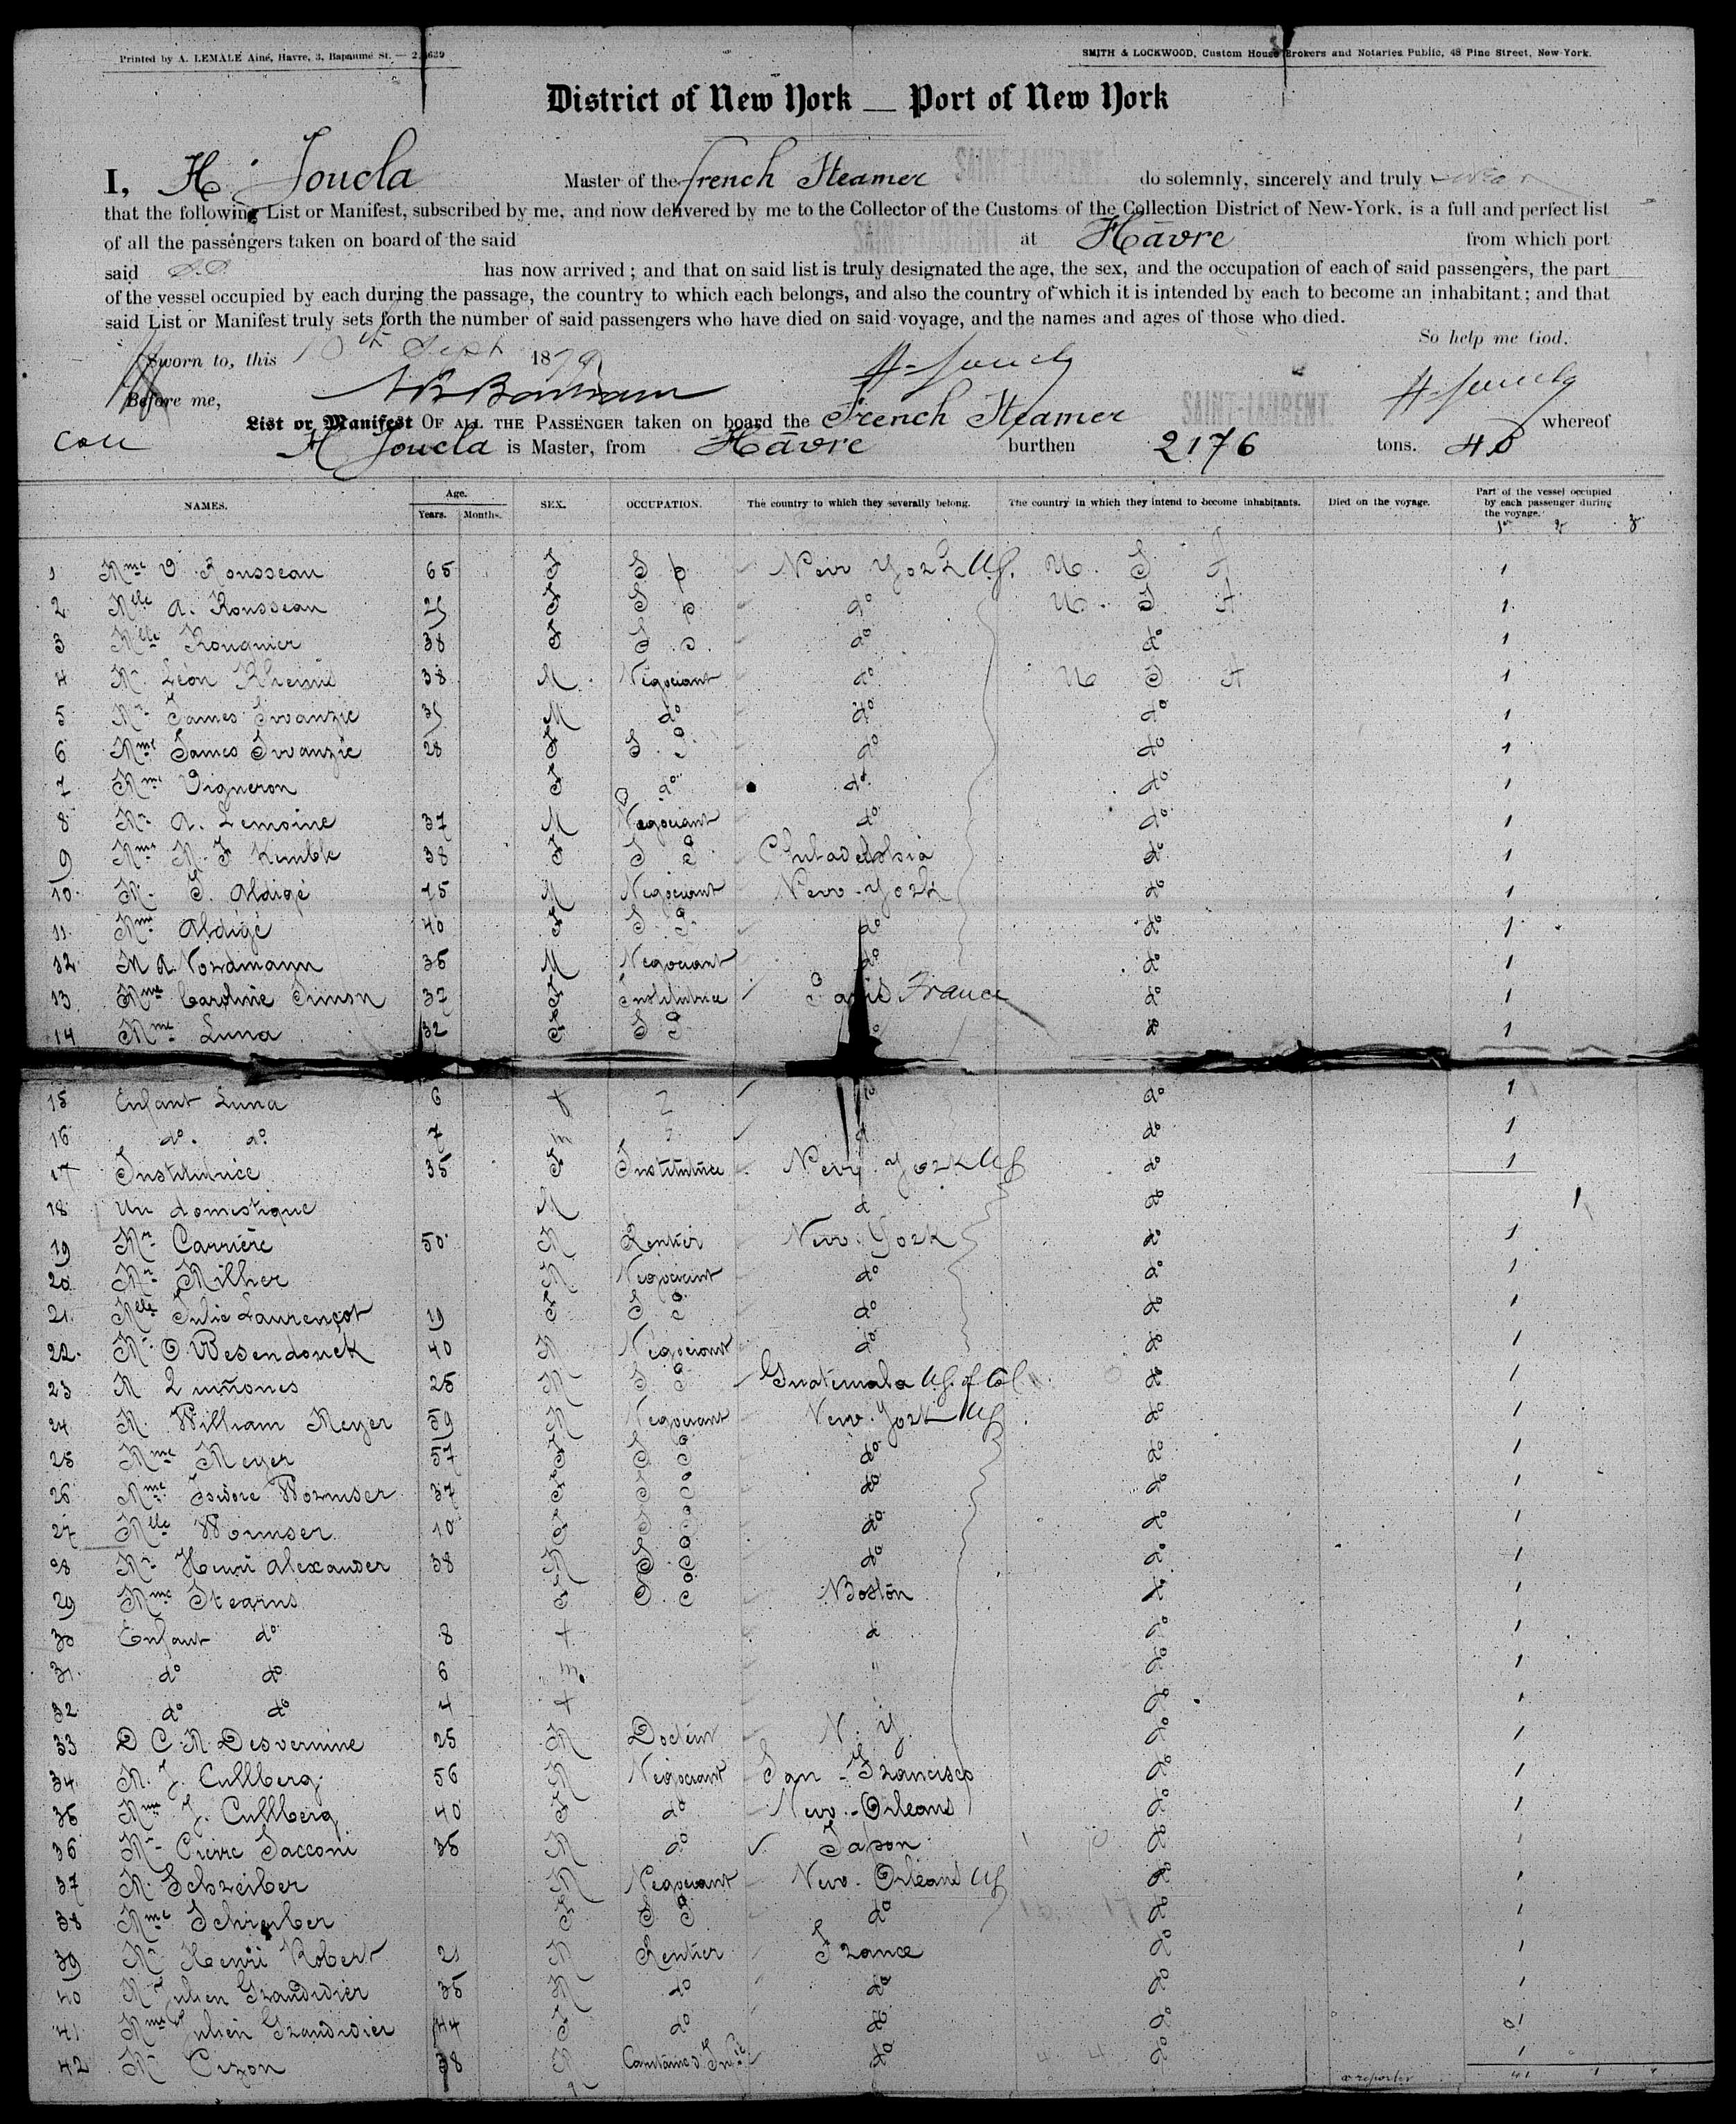 Printed by A. LEMALE Ainé, Havre, 3, Bapaume St. —
SMITH & LOCKWOOD, Custom House Brokers and Notaries Public, 48 Pine Street, New-York.
District of New York — Port of New York
I, H. Joucla Master of the french Steamer SAINT-LAURENT do solemnly, sincerely and truly
that the following List or Manifest, subscribed by me, and now delivered by me to the Collector of the Customs of the Collection District of New-York, is a full and perfect list
of all the passengers taken on board of the said SAINT-LAURENT at Havre from which port
said has now arrived ; and that on said list is truly designated the age, the sex, and the occupation of each of said passengers, the part
of the vessel occupied by each during the passage, the country to which each belongs, and also the country of which it is intended by each to become an inhabitant ; and that
said List or Manifest truly sets forth the number of said passengers who have died on said voyage, and the names and ages of those who died.
So help me God.
Sworn to, this 10th Sept 1879 H. Joucla
Before me, H. Joucla
List or Manifest OF ALL THE PASSENGER taken on board the French Steamer SAINT-LAURENT whereof
H Joucla is Master, from Havre burthen 2176 tons.
NAMES. Age. Years. Months. SEX. OCCUPATION. The country to which they severally belong. The country in which they intend to become inhabitants. Died on the voyage. Part of the vessel occupied by each passenger during the voyage.
1 Mme V Rousseau 65 F S P New York U.S. U. S A 1
2 Mlle A. Rousseau 25 F S P do U. S A 1
3 Mlle Rougnier 38 F S P do do 1
4 Mr Léon 38 M Négociant do U S A 1
5 Mr James Swanzie 35 M do do do 1
6 Mme James Swanzie 28 F S. P do do 1
7 Mme Vigneron F do do do 1
8 Mr A. Lemoine 37 M Negociant do do 1
9 Mme M. F Kimble 38 F S P Philadelphia do 1
10 M. J. Aldigé 75 M Negociant New-York do 1
11 Mme Aldigé 40 F S P. do do 1
12 M A. Nordmann 36 M Negociant do do 1
13 Mme Caroline Simon 37 F Institutrice Paris France do 1
14 Mme Luna 32 F S P do do 1
15 Enfant Luna 6 f do 1
16 do. do. 7 m do 1
17 Institutrice 35 F Institutrice New York US do 1
18 Un domestique M d do 1
19 Mr Carrière 50 M Rentier New York do 1
20 Mr Milher M Negociant do do 1
21 Mlle Julie Laurençot 19 F S P do do 1
22 Mr O Wesendonck 40 M Negociant do do 1
23 M Quiñones 25 M S. P Guatemala U.S. of Col. do 1
24 M. William Meyer 59 M Negociant New-York US do 1
25 Mme Meyer 57 F S P do do 1
26 Mme Isidore Wormser 37 F S P do do 1
27 Mlle Wormser 10 F S P do do 1
28 Mr Henri Alexander 38 M S P do do 1
29 Mme Stearns F S. P Boston do 1
30 Enfant do 8 f d do 1
31 do do 6 m " do 1
32 do do 4 f do 1
33 D C. M Desvernine 25 M Docteur N. Y. do 1
34 M. J. Cullberg 56 M Negociant San-Francisco do 1
35 Mme J. Cullberg 40 F do New-Orleans do 1
36 Mr Pierre Sacconi 35 M do Japon do 1
37 M. Schreiber M Negociant New-Orleans US do 1
38 Mme Schreiber F S P do do 1
39 Mr Henri Robert 21 M Rentier France do 1
40 Mr Julien Grandidier 35 M do do do 1
41 Mme Julien Grandidier 44 F do do do 1
42 Mr Cizon 38 M do do 1
a reporter 41 1